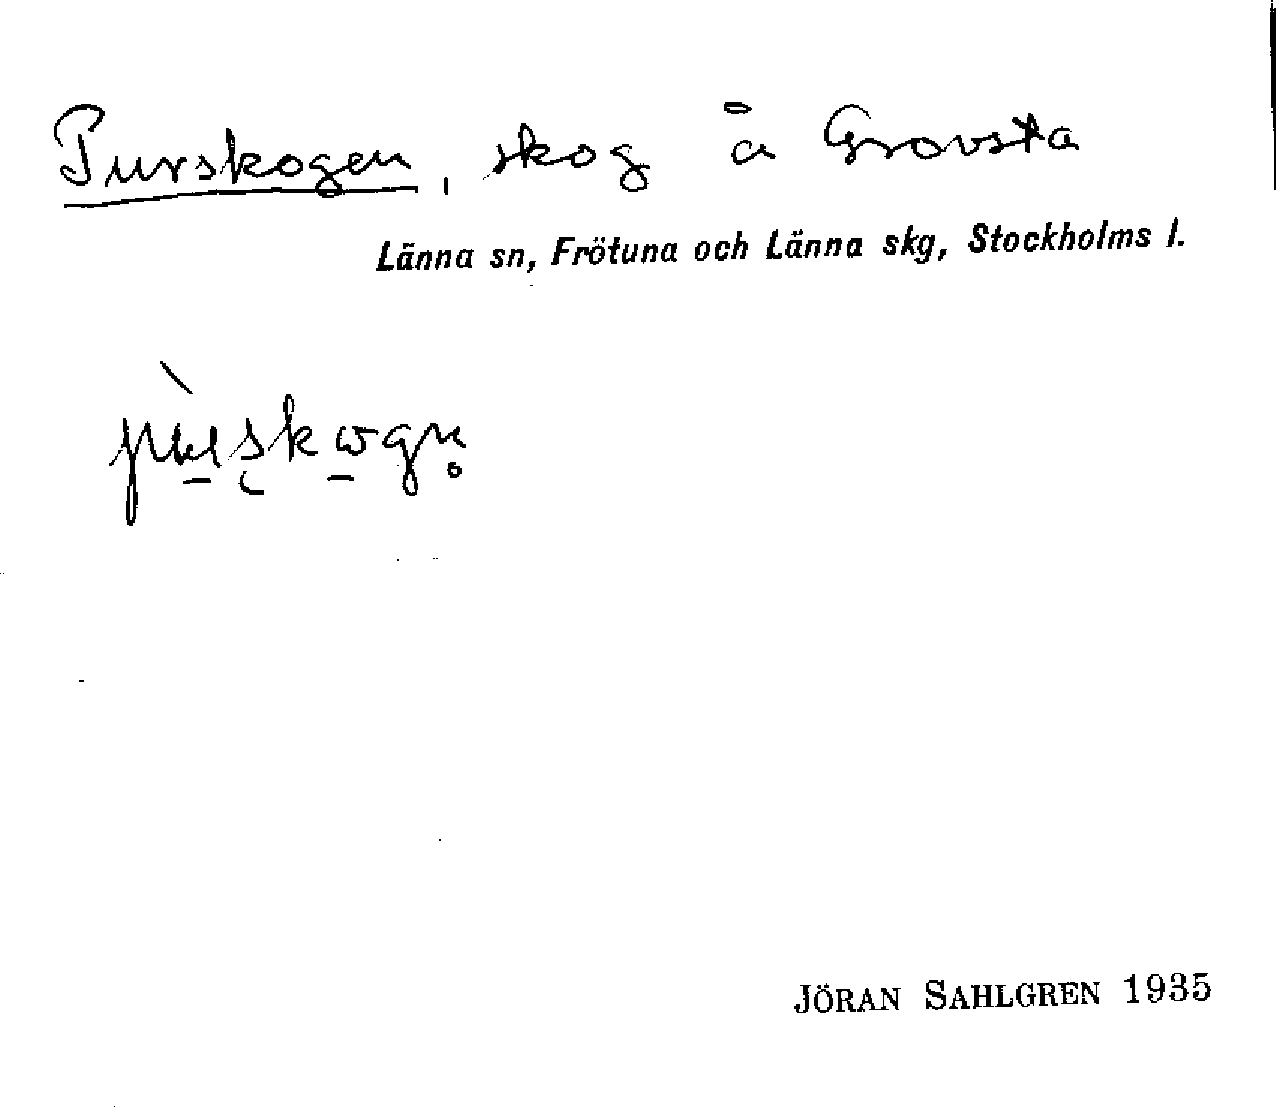 Purskogen, skog å Grovsta
Länna sn, Frötuna och Länna skg, Stockholms l.
JÖRAN SAHLGREN 1935